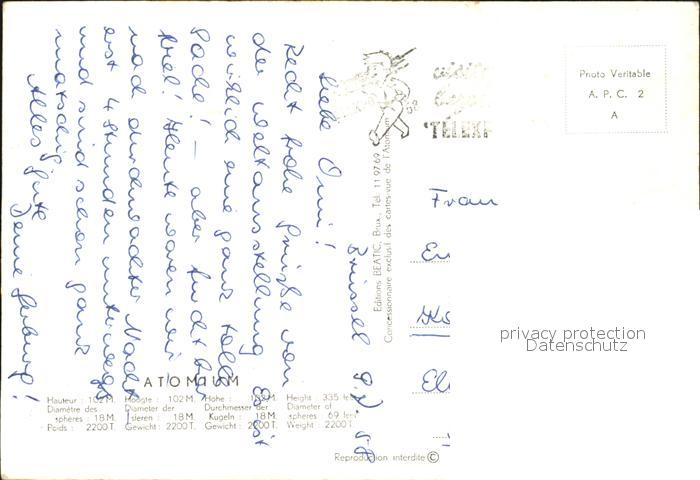 Brüssel
Liebe Omi!
Recht frohe Grüße von
der Weltausstellung. Es ist
wirklich eine ganz tolle
Sache! — aber furchtbar
viel! Heute waren wir
nach durchwachter Nacht
erst 4 Stunden unterwegs
und sind schon ganz
matschig
Alles gute
Deine
Frau
Photo Veritable
A. P. C. 2
A
Editions BEATIC, Brux., Tél. 11 97 69
Concessionnaire exclusif des cartes-vue de l'Atomium
privacy protection
Datenschutz
ATOMIUM
Hauteur : 102 M. Hoogte : 102 M. Höhe : 102 M. Height : 335 feet
Diamètre des Diameter der Durchmesser der Diameter of
sphères : 18 M. sferen : 18 M. Kugeln : 18 M. spheres : 69 feet
Poids : 2200 T. Gewicht : 2200 T. Gewicht : 2200 T. Weight : 2200 T.
Reproduction interdite ©